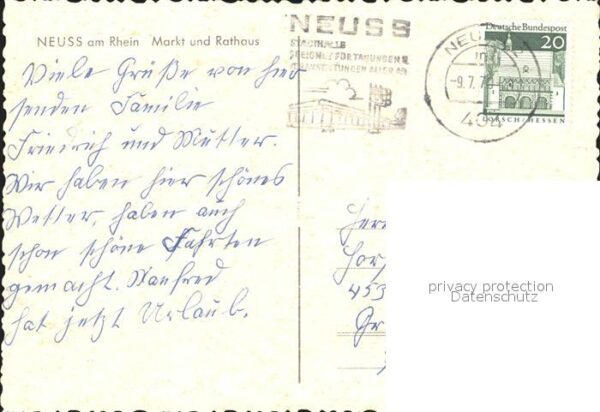 NEUSS am Rhein Markt und Rathaus
Viele Grüße von hier
senden Familie
Friedrich und Mutter.
Wir haben hier schönes
Wetter, haben auch
schon schöne Fahrten
gemacht. Manfred
hat jetzt Urlaub.
NEUSS
STADTHALLE
GEEIGNET FÜR TAGUNGEN U.
ALLER ART
NEUSS
-9.7.
404
Deutsche Bundespost
20
LORSCH/HESSEN
453
privacy protection
Datenschutz